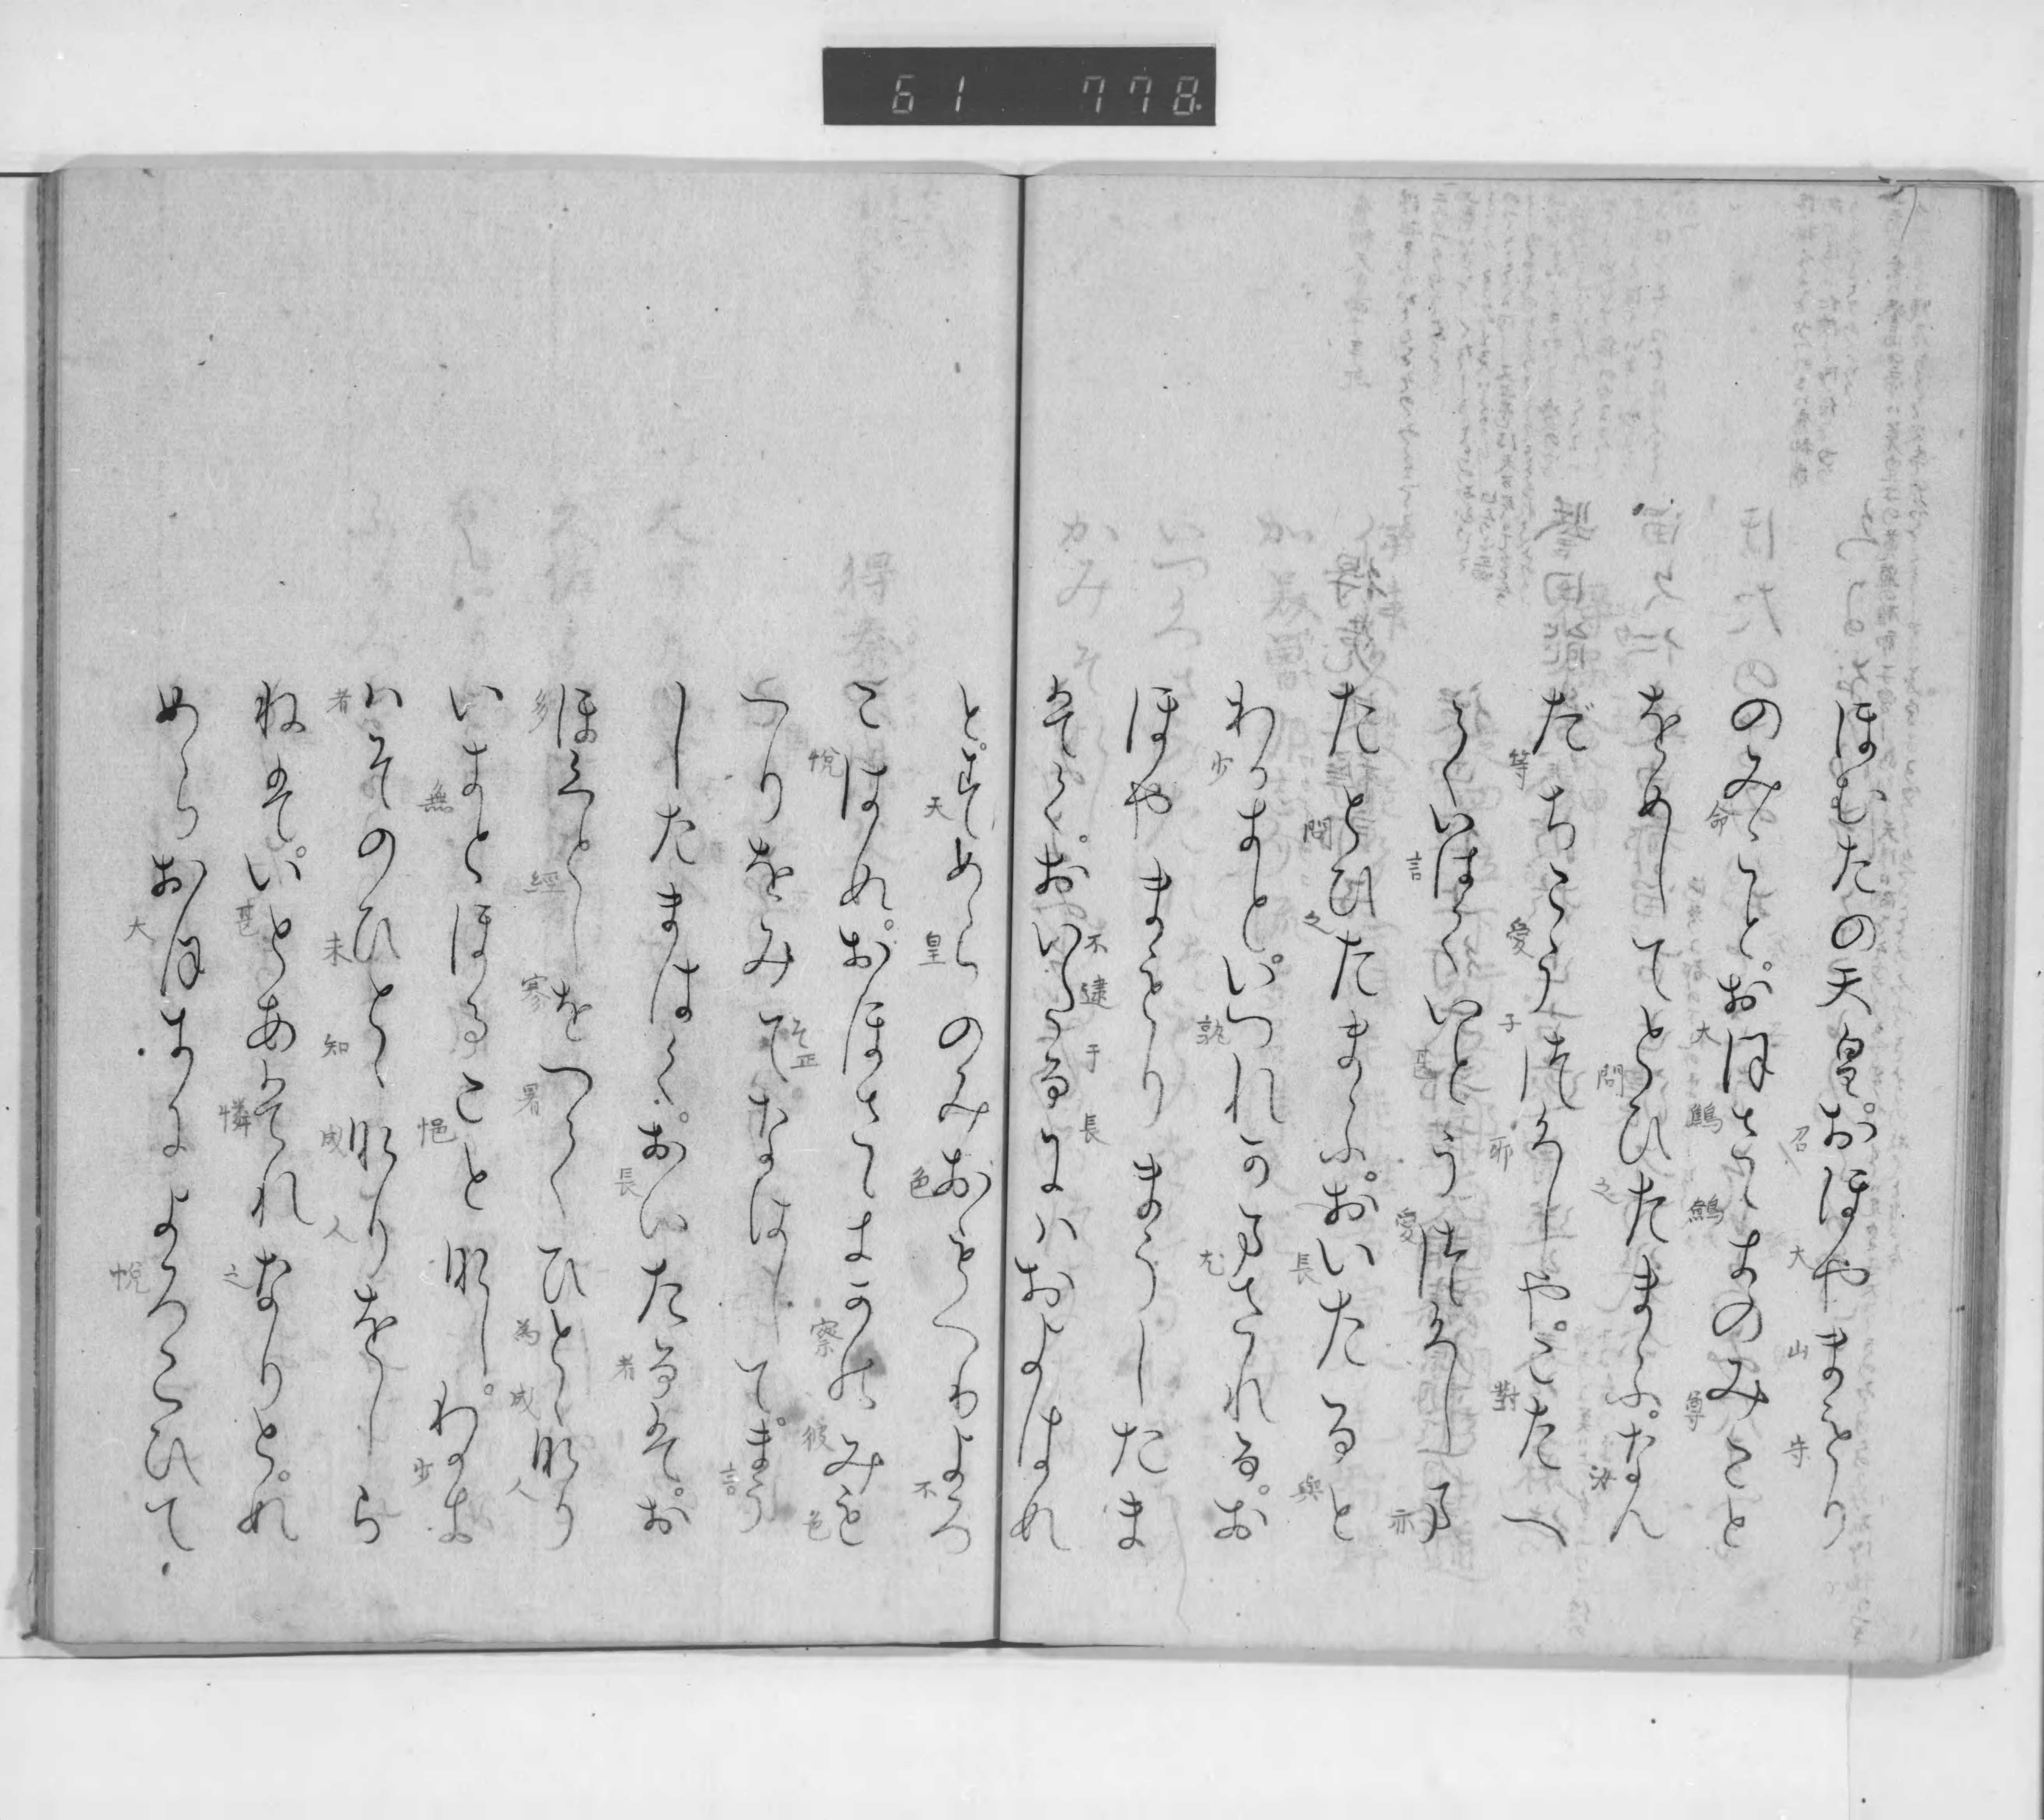 61 778.
ほむたの天皇。おほやまもり
召 大 山 守
のみこと。おほさゝきのみこと
命 大 鷦 鷯 尊
をめしてとひたまふ。なん
問 之 汝
だちこうつくしや。こたへ
等 愛 子 耶 對
ていはくいとうつくし 又
言 甚 愛 亦
たとひたまふ。おいたると
問 之 長 與
わかきと。いつれかまされる。お
少 孰 尤
ほやまもりまうしたま
はく。おいたるにハおよはぬ
不 逮 于 長
と。すめらのみおもへりよろ
天 皇 色 不
こはぬ。おほさゝきかのみも
悦 察 彼 色
へりをみて。なほして。まう
言
したまはく。おいたるは。お
長 者
ほくとしをつみひとゝなり
多 經 寒 暑 為 成 人
いまとほることなし。わかき
無 悒 少
ハそのひとゝなりをしら
者 未 知 成 人
ねは。いとあはれなりと。
甚 憐 之
めらおほきによろこひて
大 悦